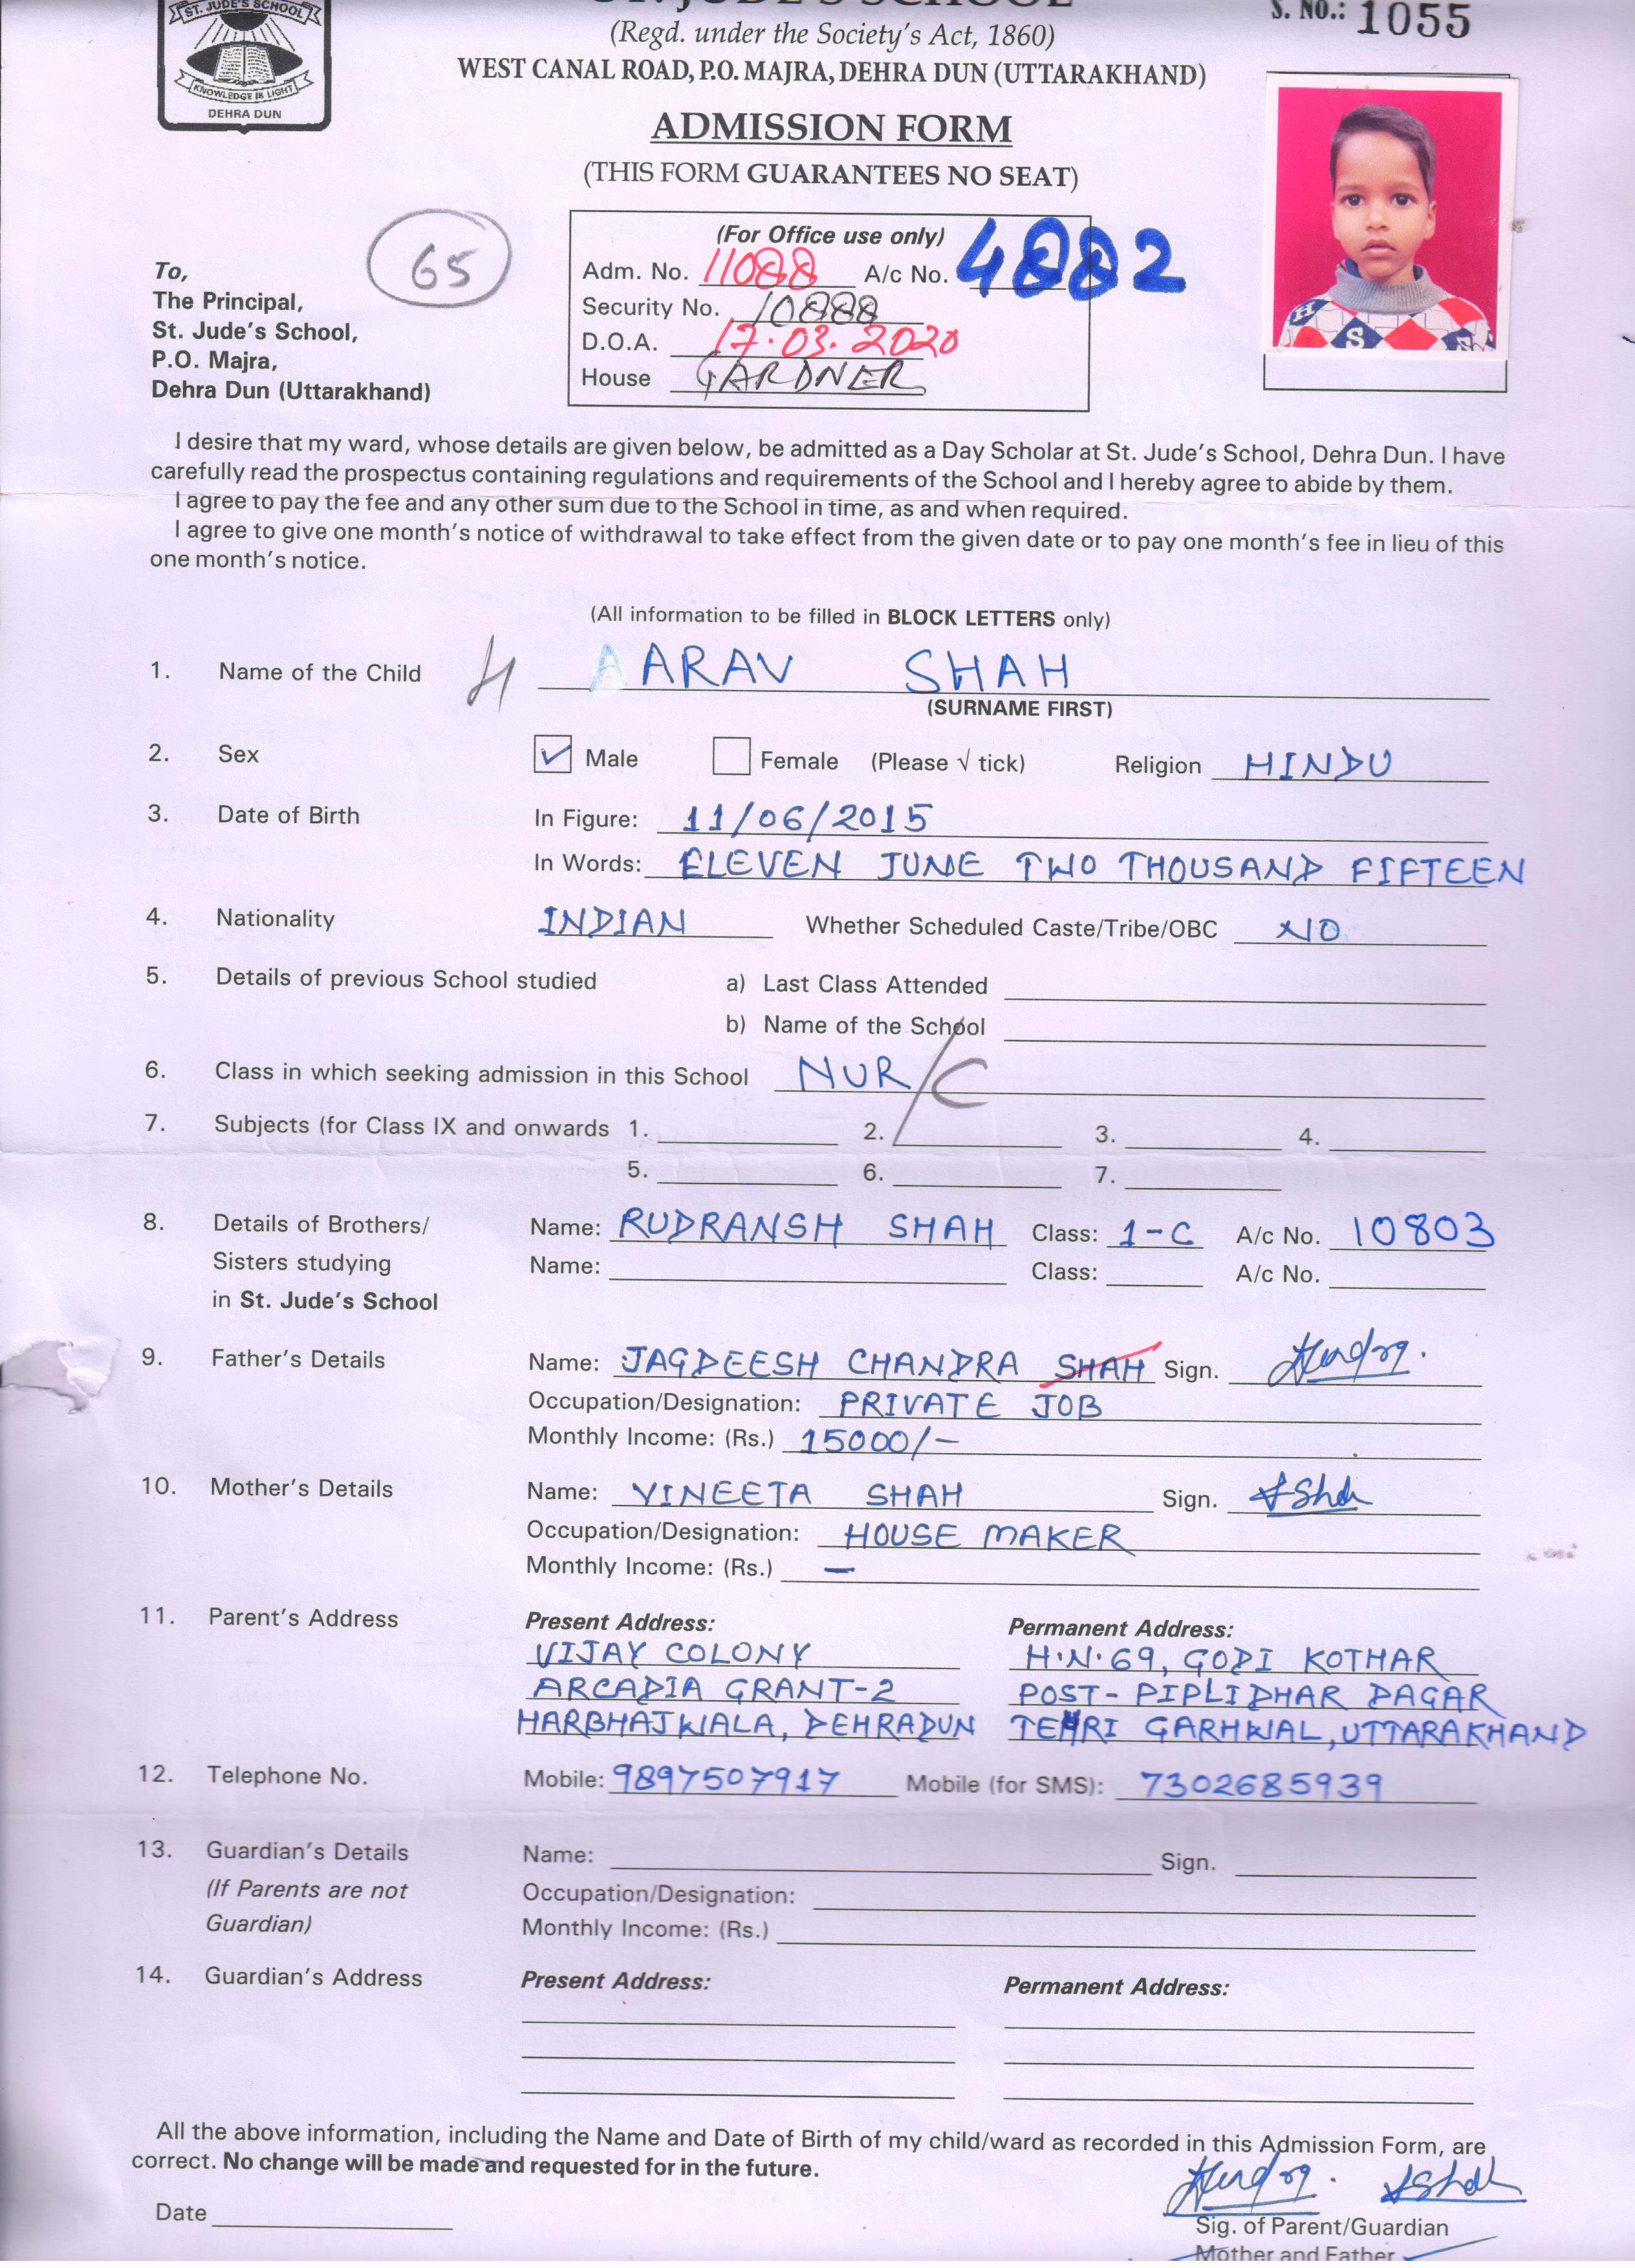 ST. JUDE'S SCHOOL
KNOWLEDGE IS LIGHT
DEHRA DUN
ST. JUDE'S SCHOOL
S. NO.: 1055
(Regd. under the Society's Act, 1860)
WEST CANAL ROAD, P.O. MAJRA, DEHRA DUN (UTTARAKHAND)
ADMISSION FORM
(THIS FORM GUARANTEES NO SEAT)
65
(For Office use only)
Adm. No. 11088 A/c No. 4882
Security No. 10888
D.O.A. 17.03.2020
House GARDNER
To,
The Principal,
St. Jude's School,
P.O. Majra,
Dehra Dun (Uttarakhand)
I desire that my ward, whose details are given below, be admitted as a Day Scholar at St. Jude's School, Dehra Dun. I have
carefully read the prospectus containing regulations and requirements of the School and I hereby agree to abide by them.
I agree to pay the fee and any other sum due to the School in time, as and when required.
I agree to give one month's notice of withdrawal to take effect from the given date or to pay one month's fee in lieu of this
one month's notice.
(All information to be filled in BLOCK LETTERS only)
1. Name of the Child AARAV SHAH
(SURNAME FIRST)
2. Sex ✓ Male Female (Please √ tick) Religion HINDU
3. Date of Birth In Figure: 11/06/2015
In Words: ELEVEN JUNE TWO THOUSAND FIFTEEN
4. Nationality INDIAN Whether Scheduled Caste/Tribe/OBC NO
5. Details of previous School studied a) Last Class Attended
b) Name of the School
6. Class in which seeking admission in this School NUR/C
7. Subjects (for Class IX and onwards 1. 2. 3. 4.
5. 6. 7.
8. Details of Brothers/ Name: RUDRANSH SHAH Class: 1-C A/c No. 10803
Sisters studying Name: Class: A/c No.
in St. Jude's School
9. Father's Details Name: JAGDEESH CHANDRA SHAH Sign.
Occupation/Designation: PRIVATE JOB
Monthly Income: (Rs.) 15000/-
10. Mother's Details Name: VINEETA SHAH Sign.
Occupation/Designation: HOUSE MAKER
Monthly Income: (Rs.) —
11. Parent's Address Present Address: Permanent Address:
VIJAY COLONY H.N.69, GODI KOTHAR
ARCADIA GRANT-2 POST- PIPLIDHAR DAGAR
HARBHAJWALA, DEHRADUN TEHRI GARHWAL, UTTARAKHAND
12. Telephone No. Mobile: 9897507917 Mobile (for SMS): 7302685939
13. Guardian's Details Name: Sign.
(If Parents are not Occupation/Designation:
Guardian) Monthly Income: (Rs.)
14. Guardian's Address Present Address: Permanent Address:
All the above information, including the Name and Date of Birth of my child/ward as recorded in this Admission Form, are
correct. No change will be made and requested for in the future.
Date
Sig. of Parent/Guardian
Mother and Father